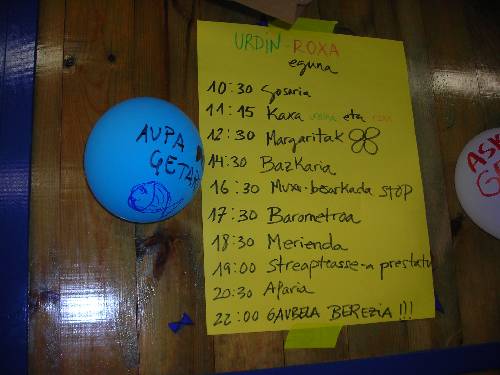 URDIN-ROXA
eguna
10:30 Gosaria
11:15 Kaxa urdina eta roxa
12:30 Margaritak
14:30 Bazkaria
16:30 Muxu-besarkada STOP
17:30 Barometroa
18:30 Merienda
19:00 Streaptease-a prestatu
20:30 Aparia
22:00 GAUBELA BEREZIA !!!
AUPA
GETAR
ASK
G